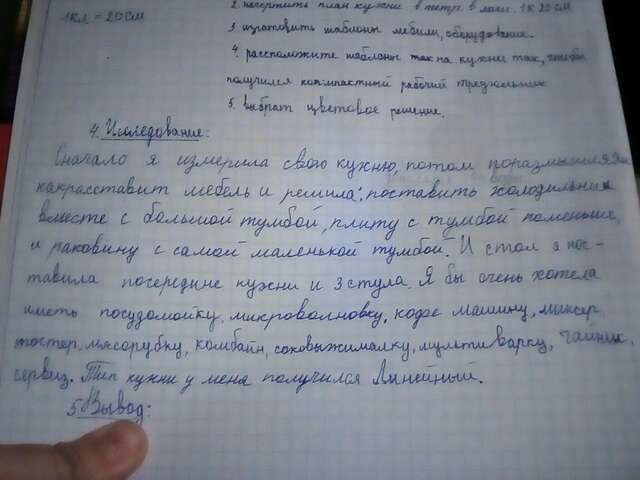 1кл = 20см
2. начертить план кухни в тетр. в мас. 1к 20см
3 изготовить шаблоны мебели, оборудования.
4. расположите шаблоны так на кухни так, чтобы
получился компактный рабочий треугольник
5. выбрат цветовое решение.
4. Исследование:
Сначало я измерила свою кухню, потом поразмышляла
какрасставит мебель и решила: поставить холодильник
вместе с большой тумбой, плиту с тумбой поменьше,
и раковину с самой маленькой тумбой. И стол я пос-
тавила посередине кухни и 3 стула. Я бы очень хотела
иметь посудомойку, микроволновку, кофе машину, миксер,
тостер, мясорубку, комбайн, соковыжималку, мультиварку, чайник,
сервиз. Тип кухни у меня получился Линейный.
5. Вывод: